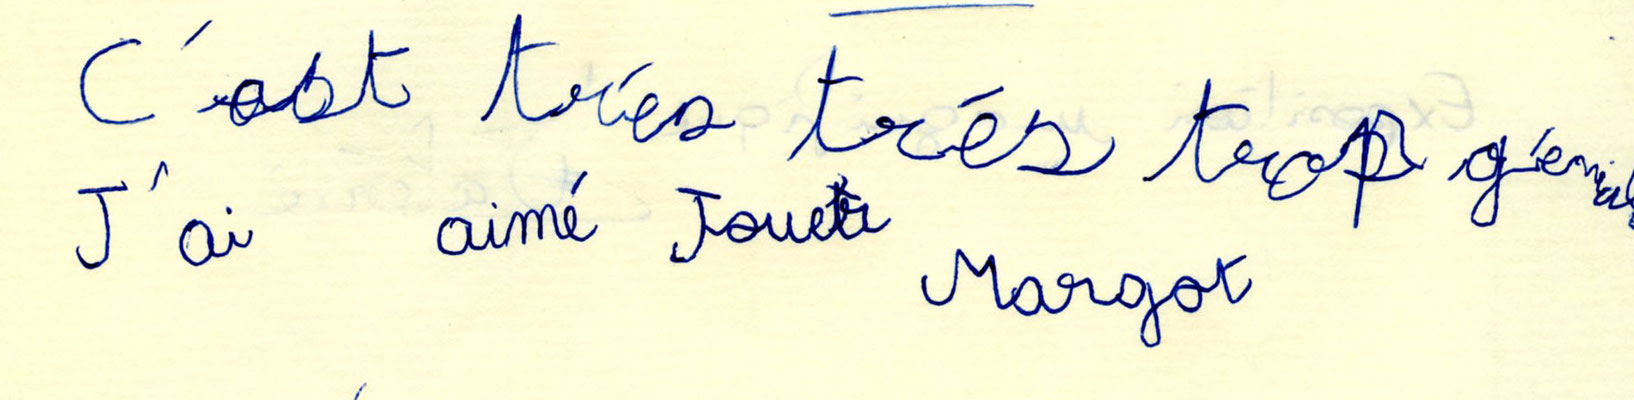 C'est trés trés trop génial
J'ai aimé Jouer
Margot